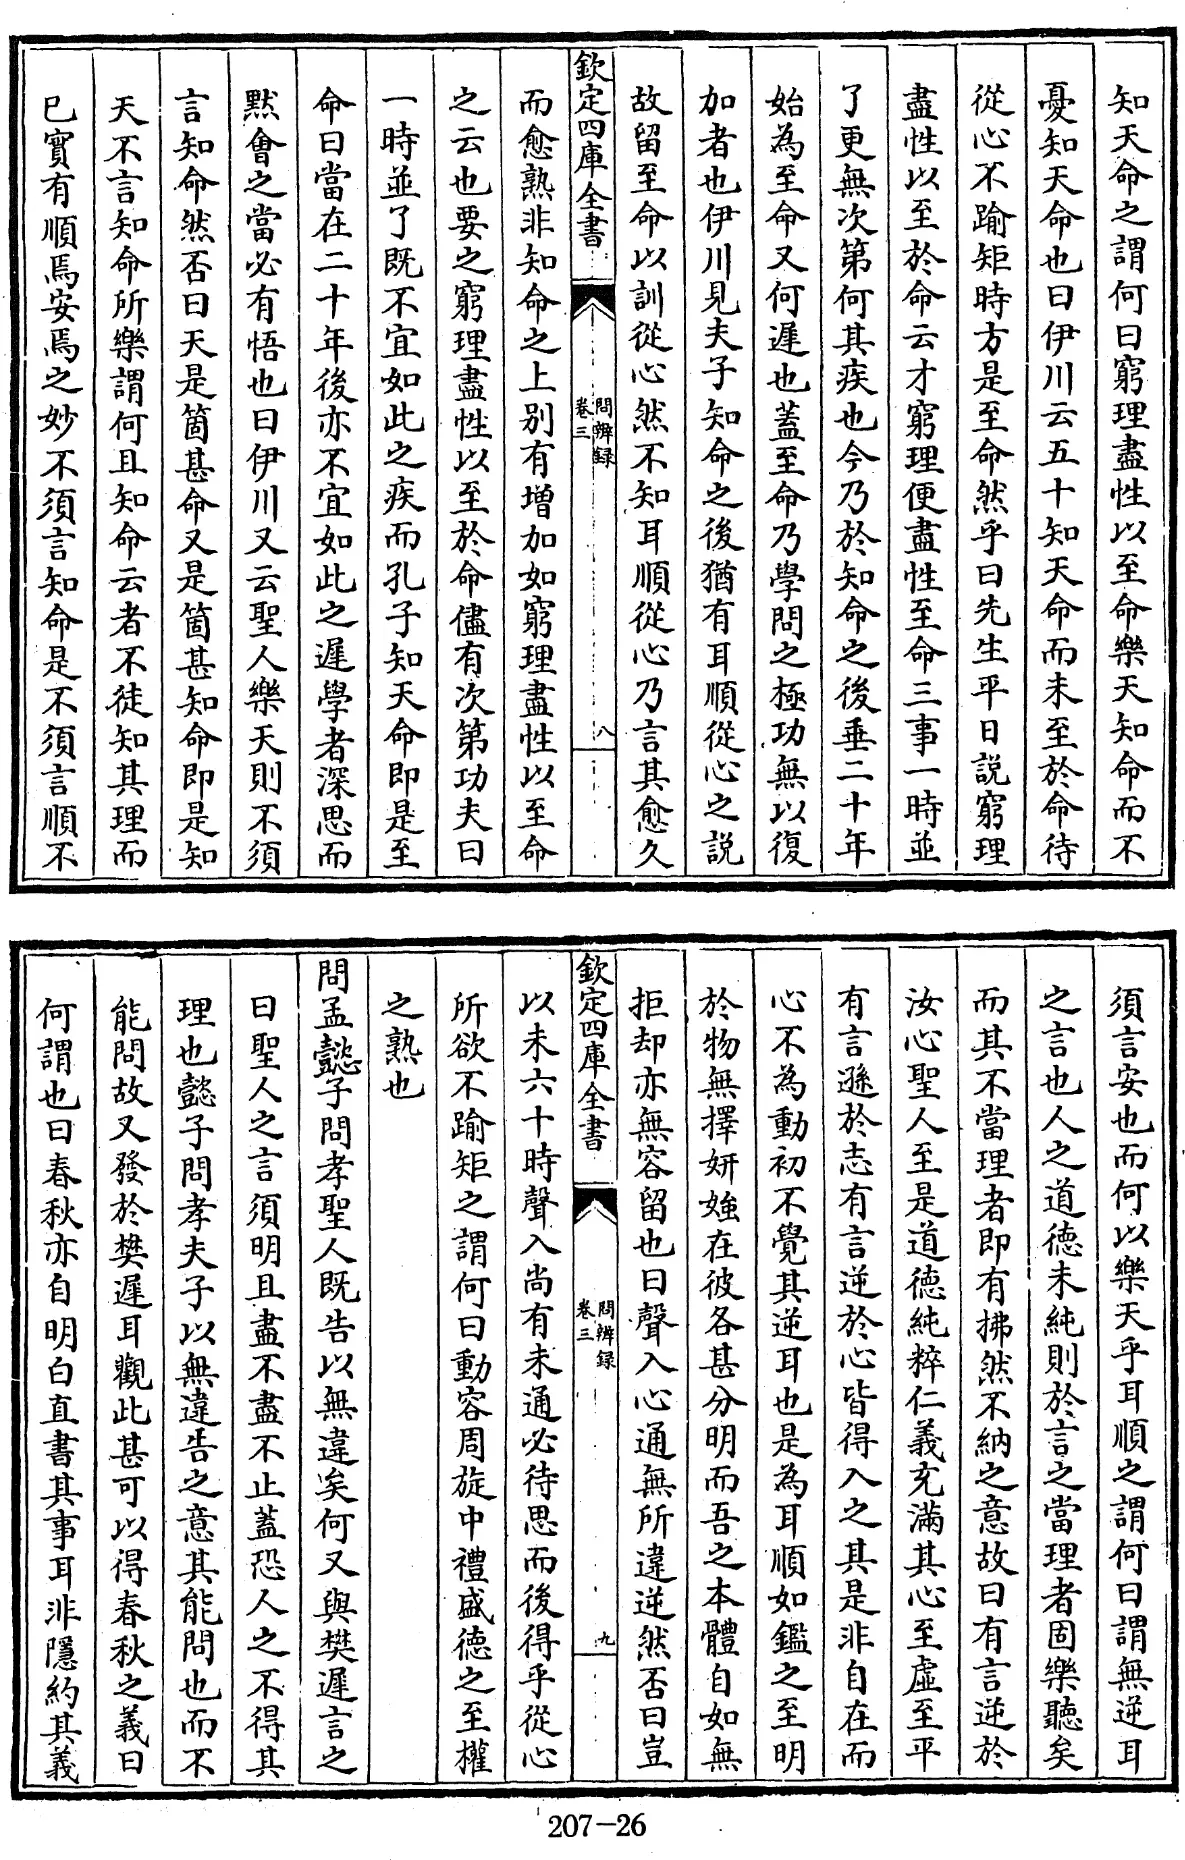 知天命之謂何曰窮理盡性以至命樂天知命而不
憂知天命也曰伊川云五十知天命而未至於命待
從心不踰矩時方是至命然乎曰先生平日說窮理
盡性以至於命云才窮理便盡性至命三事一時並
了更無次第何其疾也今乃於知命之後垂二十年
始為至命又何遲也蓋至命乃學問之極功無以復
加者也伊川見夫子知命之後猶有耳順從心之說
故留至命以訓從心然不知耳順從心乃言其愈久
欽定四庫全書
問辨録
卷三
八
而愈熟非知命之上別有增加如窮理盡性以至命
之云也要之窮理盡性以至於命儘有次第功夫曰
一時並了既不宜如此之疾而孔子知天命即是至
命曰當在二十年後亦不宜如此之遲學者深思而
黙會之當必有悟也曰伊川又云聖人樂天則不須
言知命然否曰天是箇甚命又是箇甚知命即是知
天不言知命所樂謂何且知命云者不徒知其理而
已實有順焉安焉之妙不須言知命是不須言順不
須言安也而何以樂天乎耳順之謂何曰謂無逆耳
之言也人之道德未純則於言之當理者固樂聽矣
而其不當理者即有拂然不納之意故曰有言逆於
汝心聖人至是道德純粹仁義充滿其心至虛至平
有言遜於志有言逆於心皆得入之其是非自在而
心不為動初不覺其逆耳也是為耳順如鑑之至明
於物無擇妍媸在彼各甚分明而吾之本體自如無
拒却亦無容留也曰聲入心通無所違逆然否曰豈
欽定四庫全書
問辨録
卷三
九
以未六十時聲入尚有未通必待思而後得乎從心
所欲不踰矩之謂何曰動容周旋中禮盛德之至權
之熟也
問孟懿子問孝聖人既告以無違矣何又與樊遲言之
曰聖人之言須明且盡不盡不止蓋恐人之不得其
理也懿子問孝夫子以無違告之意其能問也而不
能問故又發於樊遲耳觀此甚可以得春秋之義曰
何謂也曰春秋亦自明白直書其事耳非隱約其義
207-26